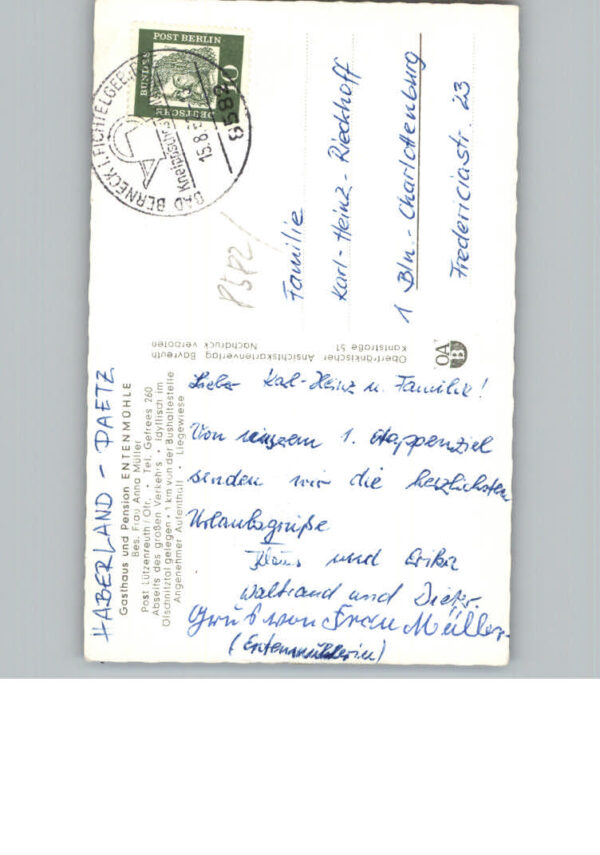 HABERLAND - PAETZ
Gasthaus und Pension ENTENMÜHLE
Bes. Frau Anna Müller
Post Lützenreuth/Ofr. · Tel. Gefrees 260
Abseits des großen Verkehrs · Idyllisch im
Ölschnitztal gelegen · 1 km von der Bushaltestelle
Angenehmer Aufenthalt · Liegewiese
Lieber Karl-Heinz u. Familie!
Von unserem 1. Etappenziel
senden wir die herzlichsten
Urlaubsgrüße
Klaus und Erika
Waltraud und Dieter
Gruß von Frau Müller
(Entenmüllerin)
Oberfränkischer Ansichtskartenverlag Bayreuth
Kantstraße 51
Nachdruck verboten
OA
B
DEUTSCHE BUNDESPOST BERLIN
10
8582 BAD BERNECK I. FICHTELGEB.
15.8.
Familie
Karl-Heinz-Rieckhoff
1 Bln.-Charlottenburg
Fredericiastr. 23